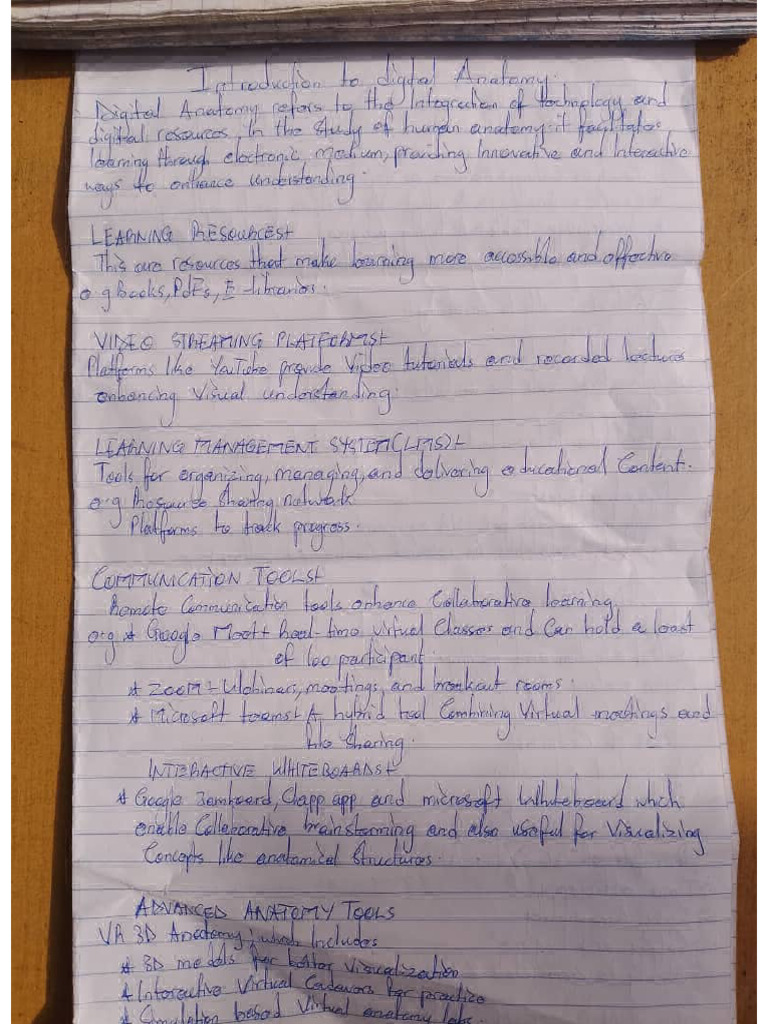 Introduction to digital Anatomy.
Digital Anatomy refers to the Integration of technology and
digital resources in the study of human anatomy. it facilitates
learning through electronic medium, providing Innovative and Interactive
ways to enhance understanding.
LEARNING RESOURCES
This are resources that make learning more accessible and effective
e.g Books, PdFs, E-libraries.
VIDEO STREAMING PLATFORMS
Platforms like YouTube provide Video tutorials and recorded lectures
enhancing Visual understanding.
LEARNING MANAGEMENT SYSTEM(LMS)
Tools for organizing, managing, and delivering educational Content.
e.g Resource sharing network
Platforms to track progress.
COMMUNICATION TOOLS
Remote Communication tools enhance Collaborative learning.
e.g * Google Meet Real-time virtual Classes and Can hold a least
of 100 participant.
* ZOOM - Webinars, meetings, and breakout rooms.
* Microsoft teams A hybrid tool Combining Virtual meetings and
file sharing.
INTERACTIVE WHITEBOARDS
* Google Jamboard, app and microsoft Whiteboard which
enable Collaborative brainstorming and also useful for Visualizing
Concepts like anatomical structures.
ADVANCED ANATOMY TOOLS
VR 3D Anatomy; which Includes
* 3D models for better Visualization
* Interactive Virtual Cadavers for practice
* Simulation based Virtual anatomy labs.